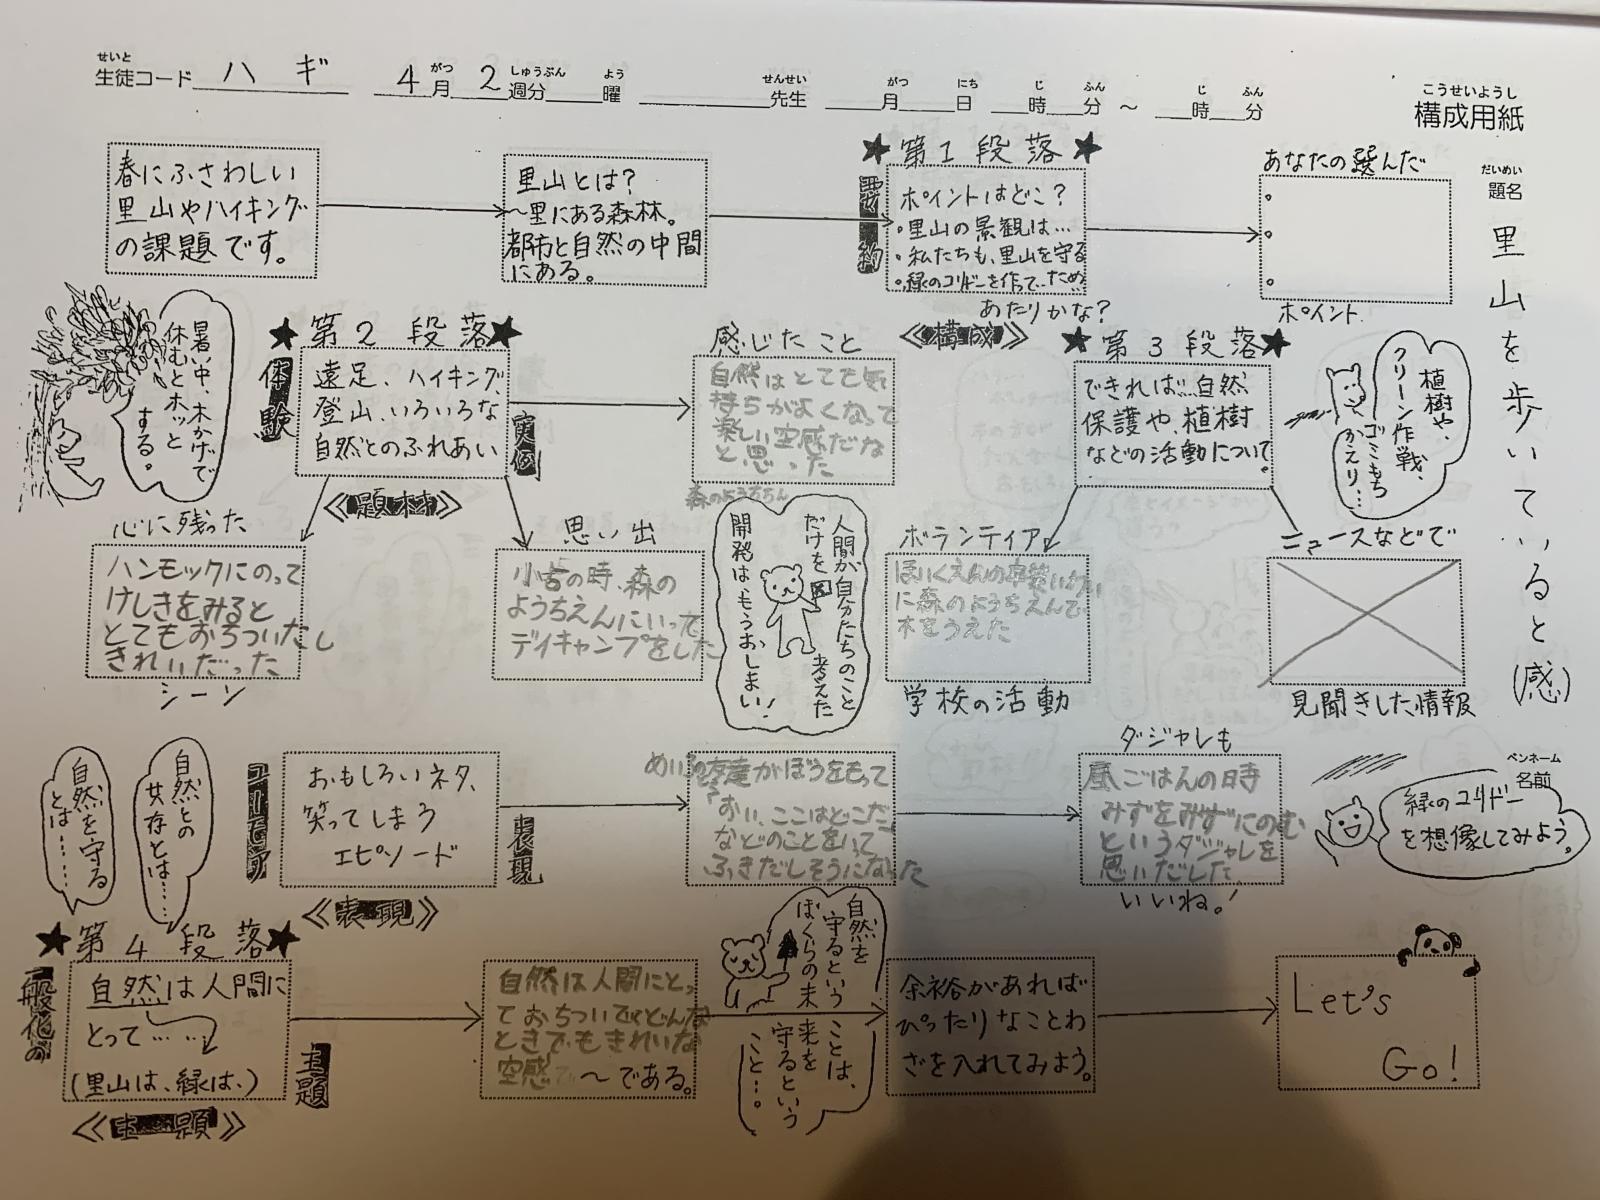 せいと
生徒コード ハギ 4月 2週分 曜 先生 月 日 時 分 ~ 時 分
がつ しゅうぶん よう せんせい がつ にち じ ふん じ ふん
こうせいようし
構成用紙
だいめい
題名
里山を歩いていると(感)
ペンネーム
名前
春にふさわしい
里山やハイキング
の課題です。
里山とは?
~里にある森林。
都市と自然の中間
にある。
★第1段落★
要約
ポイントはどこ?
・里山の景観は…
・私たちも、里山を守るため
・緑のコリドーを作って…
あたりかな?
《構成》
あなたの選んだ
ポイント
暑い中、木かげで
休むとホッと
する。
★第2段落★
体験
遠足、ハイキング、
登山、いろいろな
自然とのふれあい
実例
《題材》
感じたこと
自然はとても気
持ちがよくなって
楽しい空感だな
と思った
★第3段落★
できれば…自然
保護や、植樹
などの活動について。
植樹や、
クリーン作戦、
ゴミもち
かえり…
心に残った
ハンモックにのって
けしきをみると
とてもおちついたし
きれいだった
シーン
思い出
森のようちえん
小さの時、森の
ようちえんにいって
デイキャンプをした
人間が自分たちのこと
だけを考えた
開発は、もうおしまい!
ボランティア
ほいくえんの卒業いわい
に森のようちえんで
木をうえた
学校の活動
ニュースなどで
見聞きした情報
自然を守る
とは……
自然との
共存とは……
ユーモア
おもしろいネタ、
笑ってしまう
エピソード
表現
《表現》
友達がぼうをもって
「おい、ここはどこだ」
などのことをいって
ふきだしそうになった
ダジャレも
昼ごはんの時
みずをみずにのむ
というダジャレを
思いだした
いいね!
緑のコリドー
を想像してみよう。
★第4段落★
一般化の
自然は人間に
とって……
(里山は、緑は、)
主題
《主題》
自然は人間にとっ
ておちついてどんな
ときでもきれいな
空感で~である。
自然を
守るという
ことは、
ぼくらの未
来を
守るという
こと…。
余裕があれば
ぴったりなことわ
ざを入れてみよう。
Let's
Go!